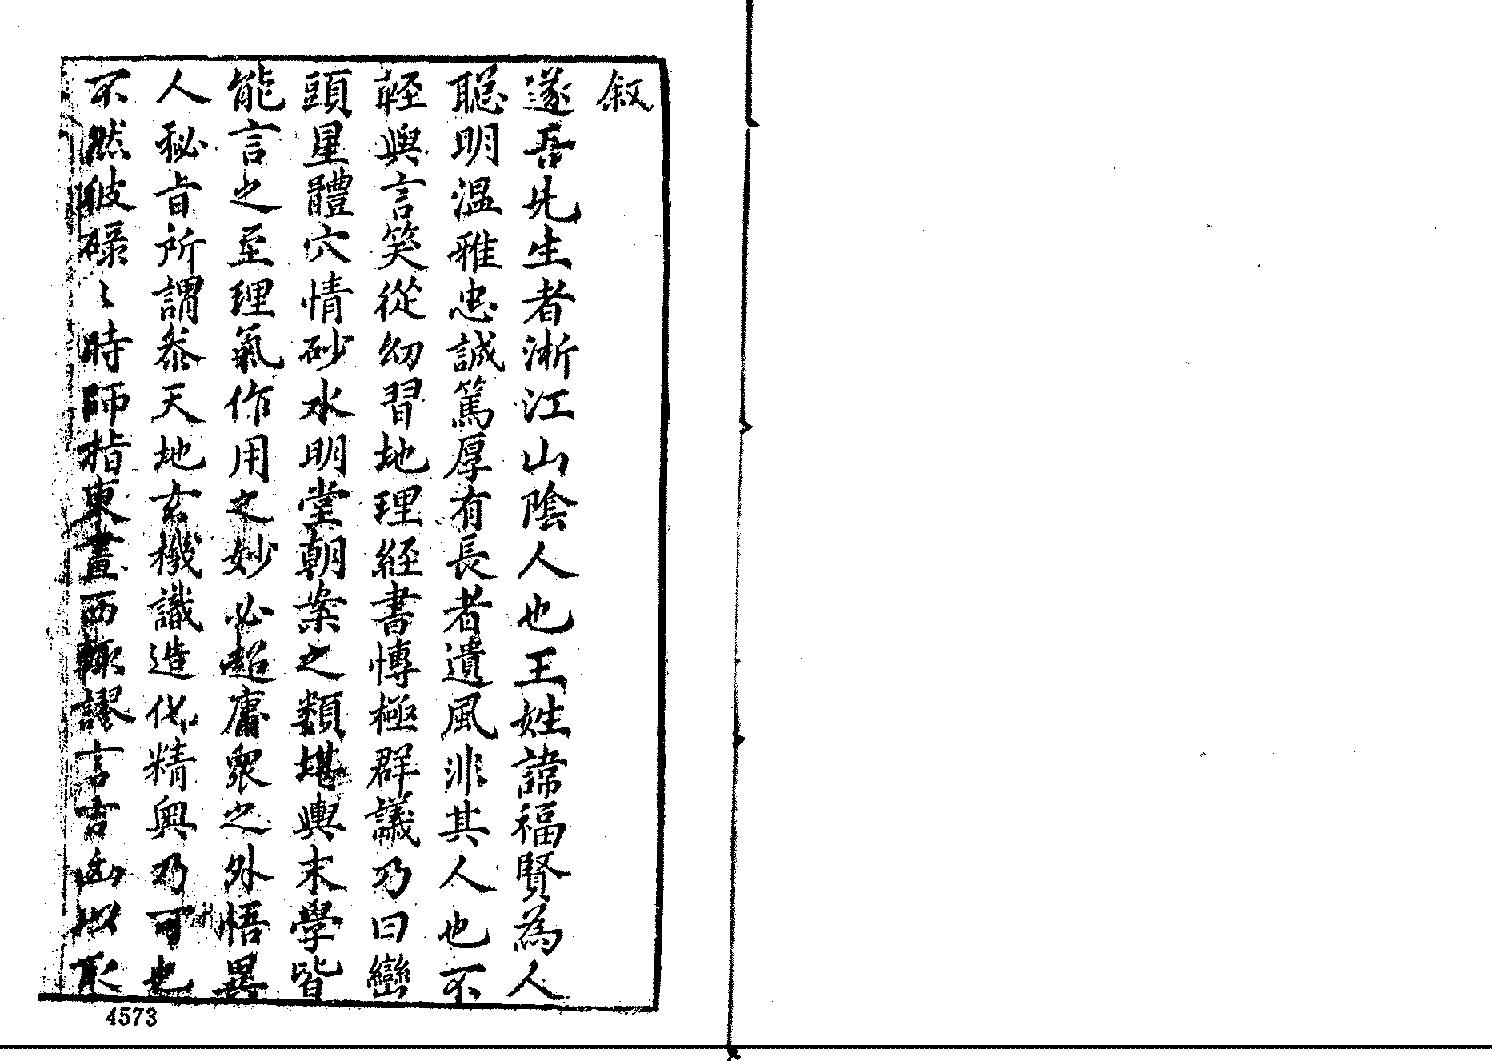 叙
遂吾先生者淅江山陰人也王姓諱福賢為人
聡明溫雅忠誠篤厚有長者遺風非其人也不
輕與言笑從幼習地理経書博極群議乃曰巒
頭星體穴情砂水明堂朝案之類堪輿末學皆
能言之至理氣作用之妙必超庸衆之外悟異
人秘旨所謂叅天地玄機識造化精奥乃可也
不然彼碌〻時師指東畫西輙謬言吉凶以取
4573